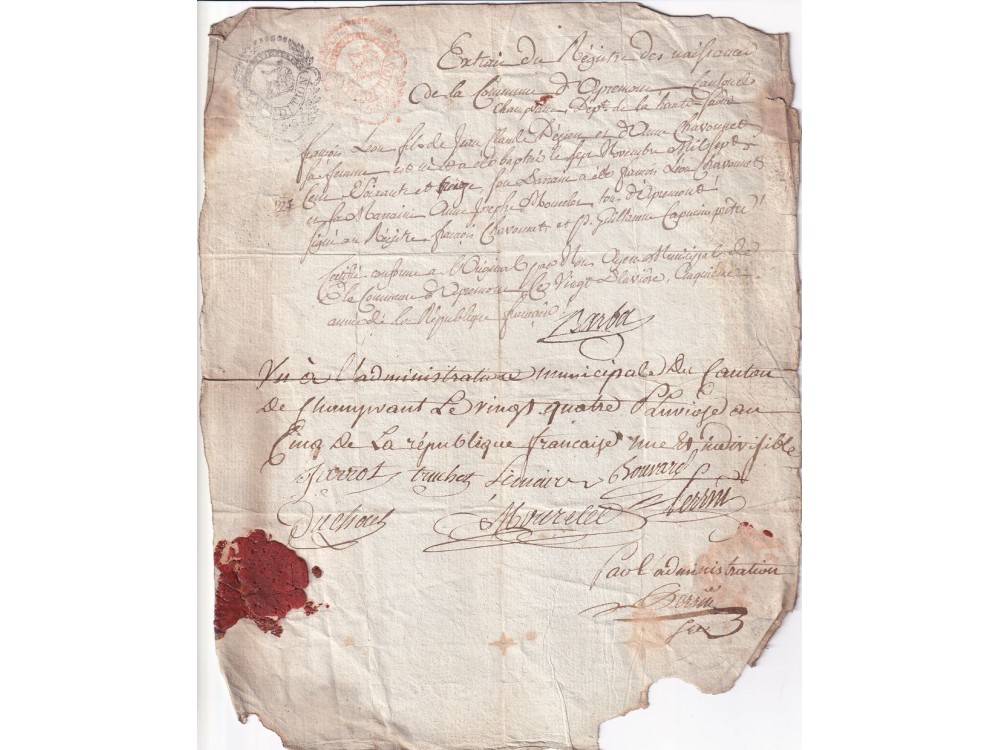 Extrait du Régistre des naissances
de la Commune d'Apremont Canton de
Champvant Dept. de la haute Saône
françois Léon fils de Jean Claude et d'Anne Chavonnet
sa femme est né et a été baptisé le sept Novembre Mil sept
Cent Soixante et treize son Parrain a été françois Léon Chavonnet
et sa Marraine Anne Josephe tous d'Apremont
signé au Régistre françois Chavonnet et p. Guillaume Capucin prêtre
Certifié conforme a l'Original par Nous Agent Municipale de
la Commune d'Apremont Le Vingt Pluviôse, Cinquième
année de la République françoise
Barba
Vu à l'administration municipale du Canton
de Champvant Le vingt quatre Pluviose an
Cinq de La république française une et indivisible
Pierrot truchot Bouvard
Perrin
Duchoul Mourelet
Par l'administration
Perrin
Ser